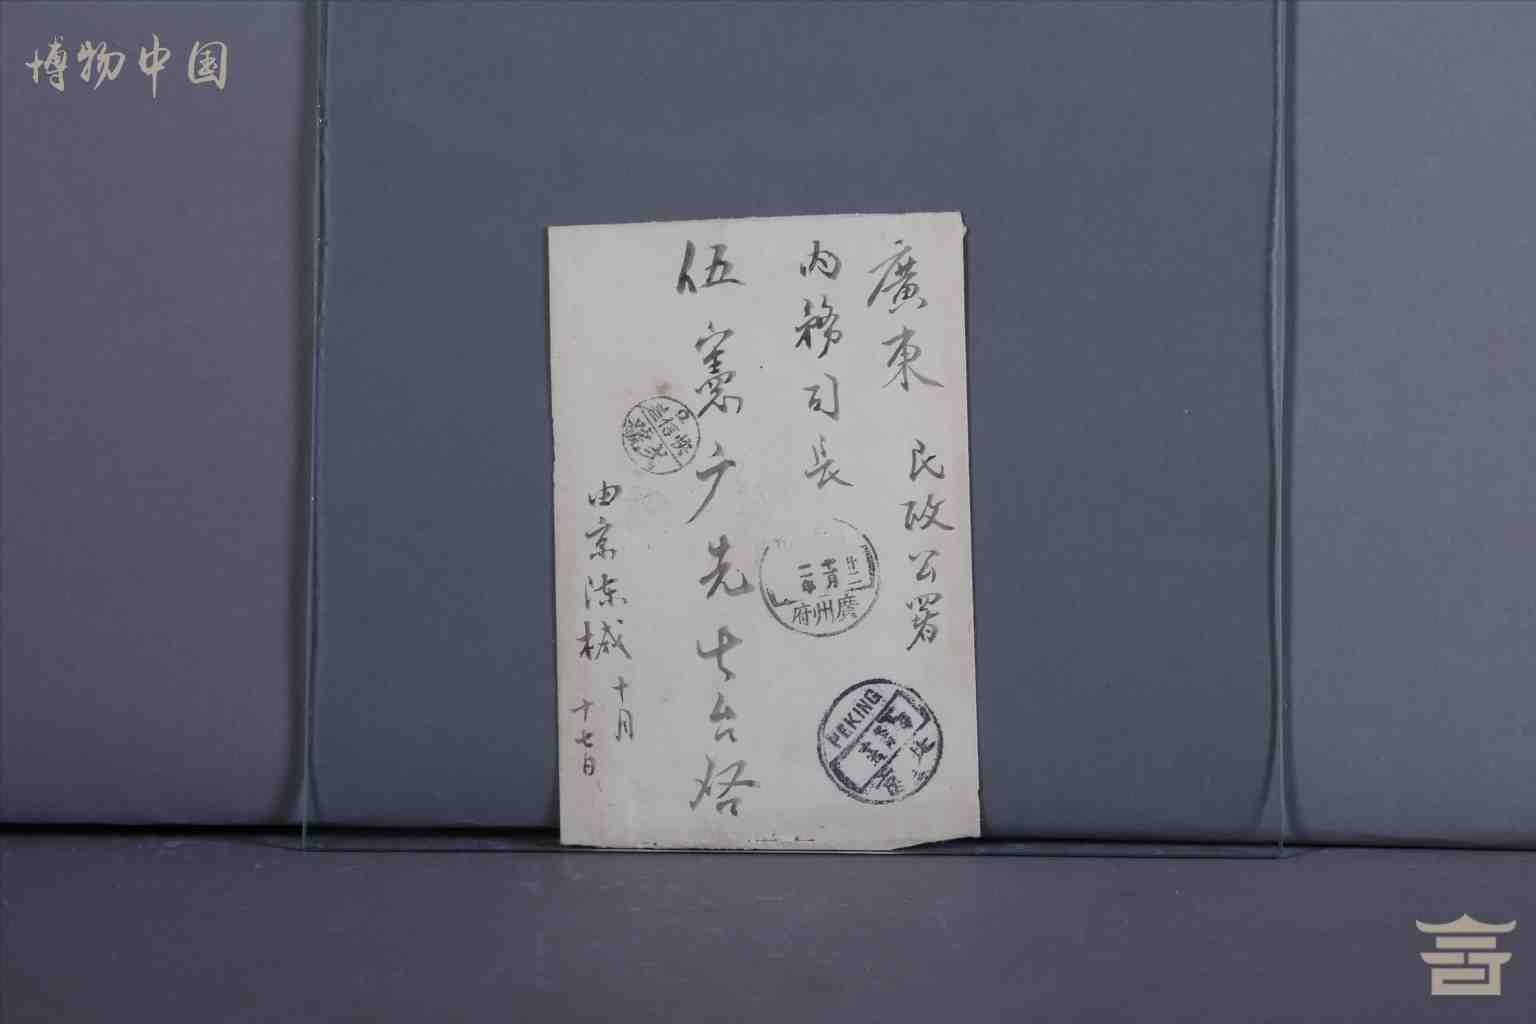 博物中国
廣東 民政公署
内務司長
伍憲子先生台啓
由京陳椷
十月
十七日
廣州府
PEKING
北京